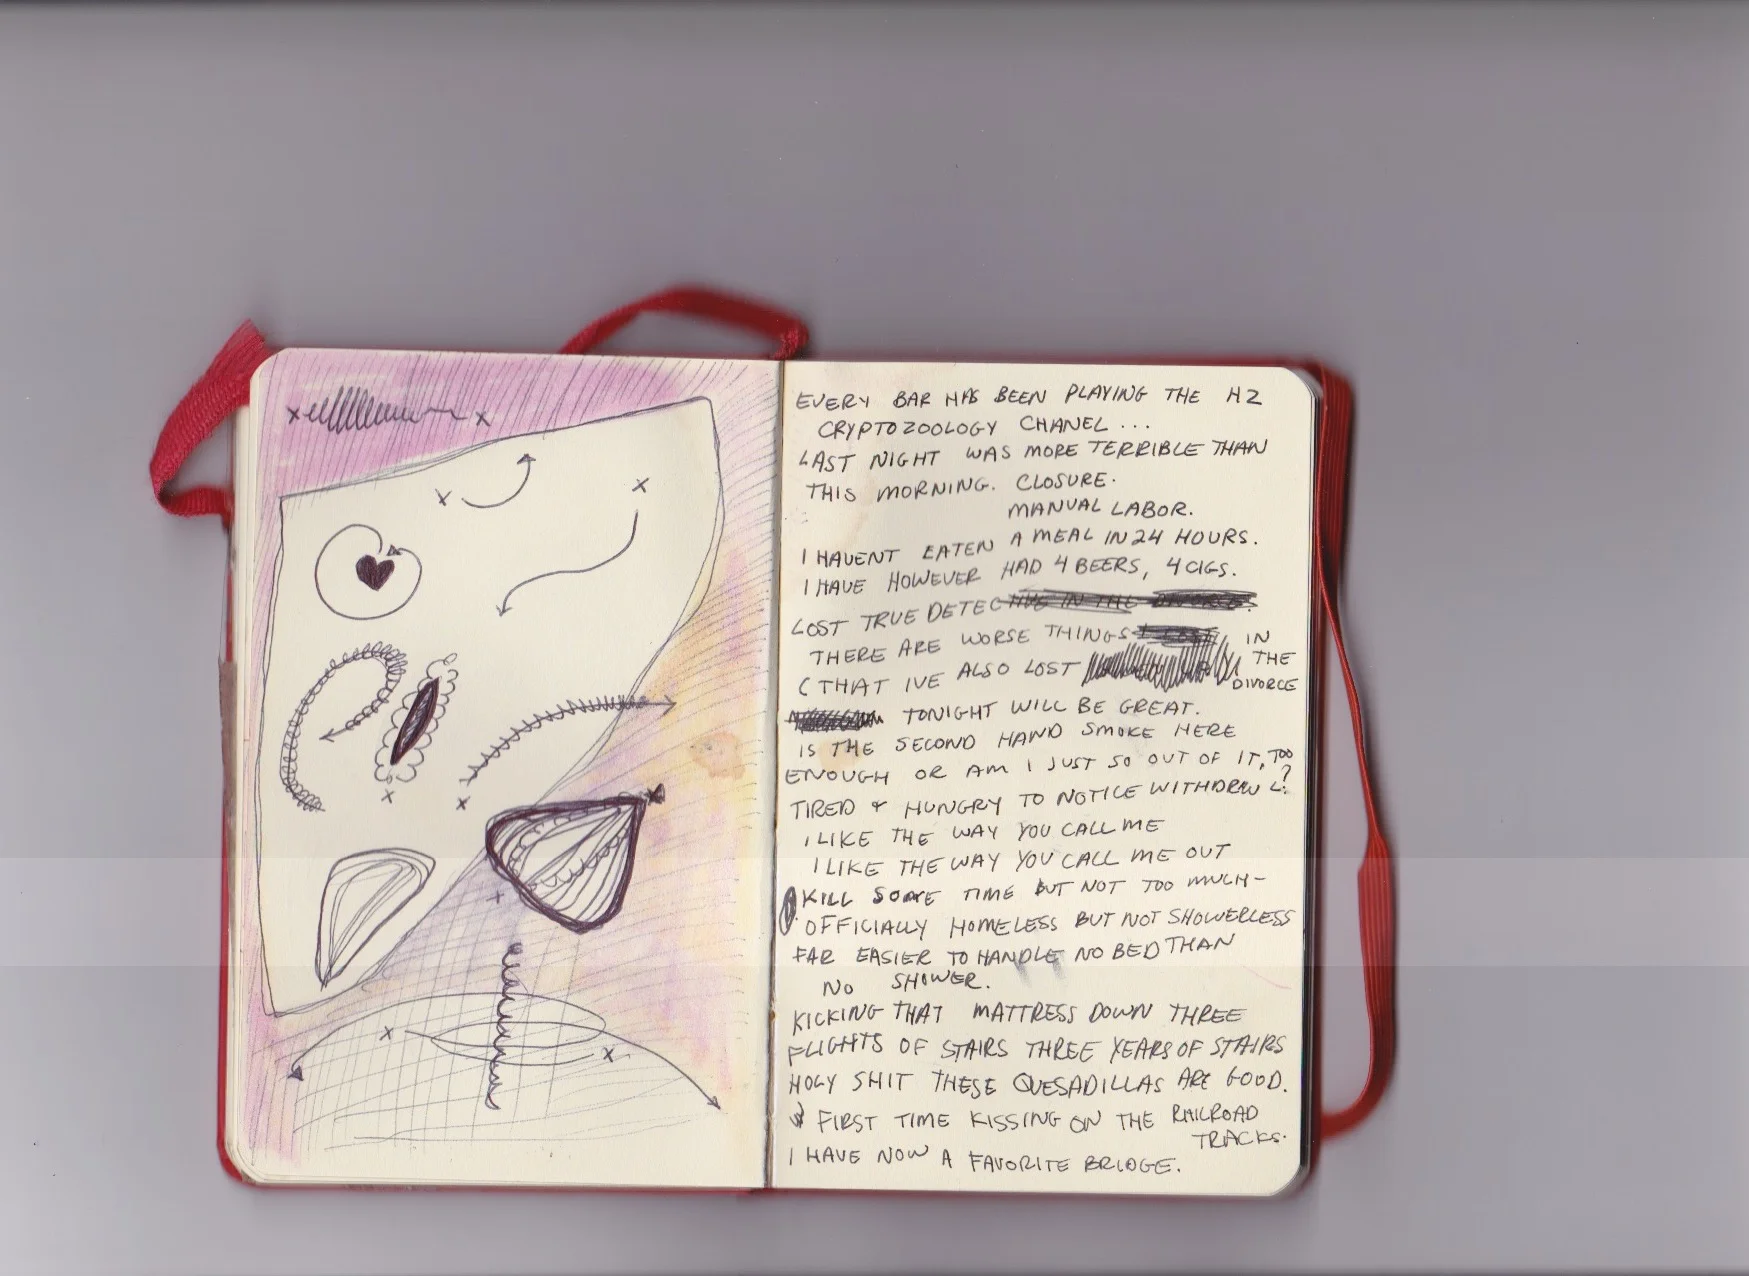 EVERY BAR HAS BEEN PLAYING THE H2
CRYPTOZOOLOGY CHANEL...
LAST NIGHT WAS MORE TERRIBLE THAN
THIS MORNING. CLOSURE.
MANUAL LABOR.
I HAVENT EATEN A MEAL IN 24 HOURS.
I HAVE HOWEVER HAD 4 BEERS, 4 CIGS.
LOST TRUE DETECTIVE IN THE DIVORCE.
THERE ARE WORSE THINGS I LOST IN
(THAT IVE ALSO LOST THE
DIVORCE
TONIGHT WILL BE GREAT.
IS THE SECOND HAND SMOKE HERE
ENOUGH OR AM I JUST SO OUT OF IT, TOO
TIRED & HUNGRY TO NOTICE WITHDRAWL?
I LIKE THE WAY YOU CALL ME
I LIKE THE WAY YOU CALL ME OUT
KILL SOME TIME BUT NOT TOO MUCH-
OFFICIALLY HOMELESS BUT NOT SHOWERLESS
FAR EASIER TO HANDLE NO BED THAN
NO SHOWER.
KICKING THAT MATTRESS DOWN THREE
FLIGHTS OF STAIRS THREE YEARS OF STAIRS
HOLY SHIT THESE QUESADILLAS ARE GOOD.
FIRST TIME KISSING ON THE RAILROAD
TRACKS.
I HAVE NOW A FAVORITE BRIDGE.